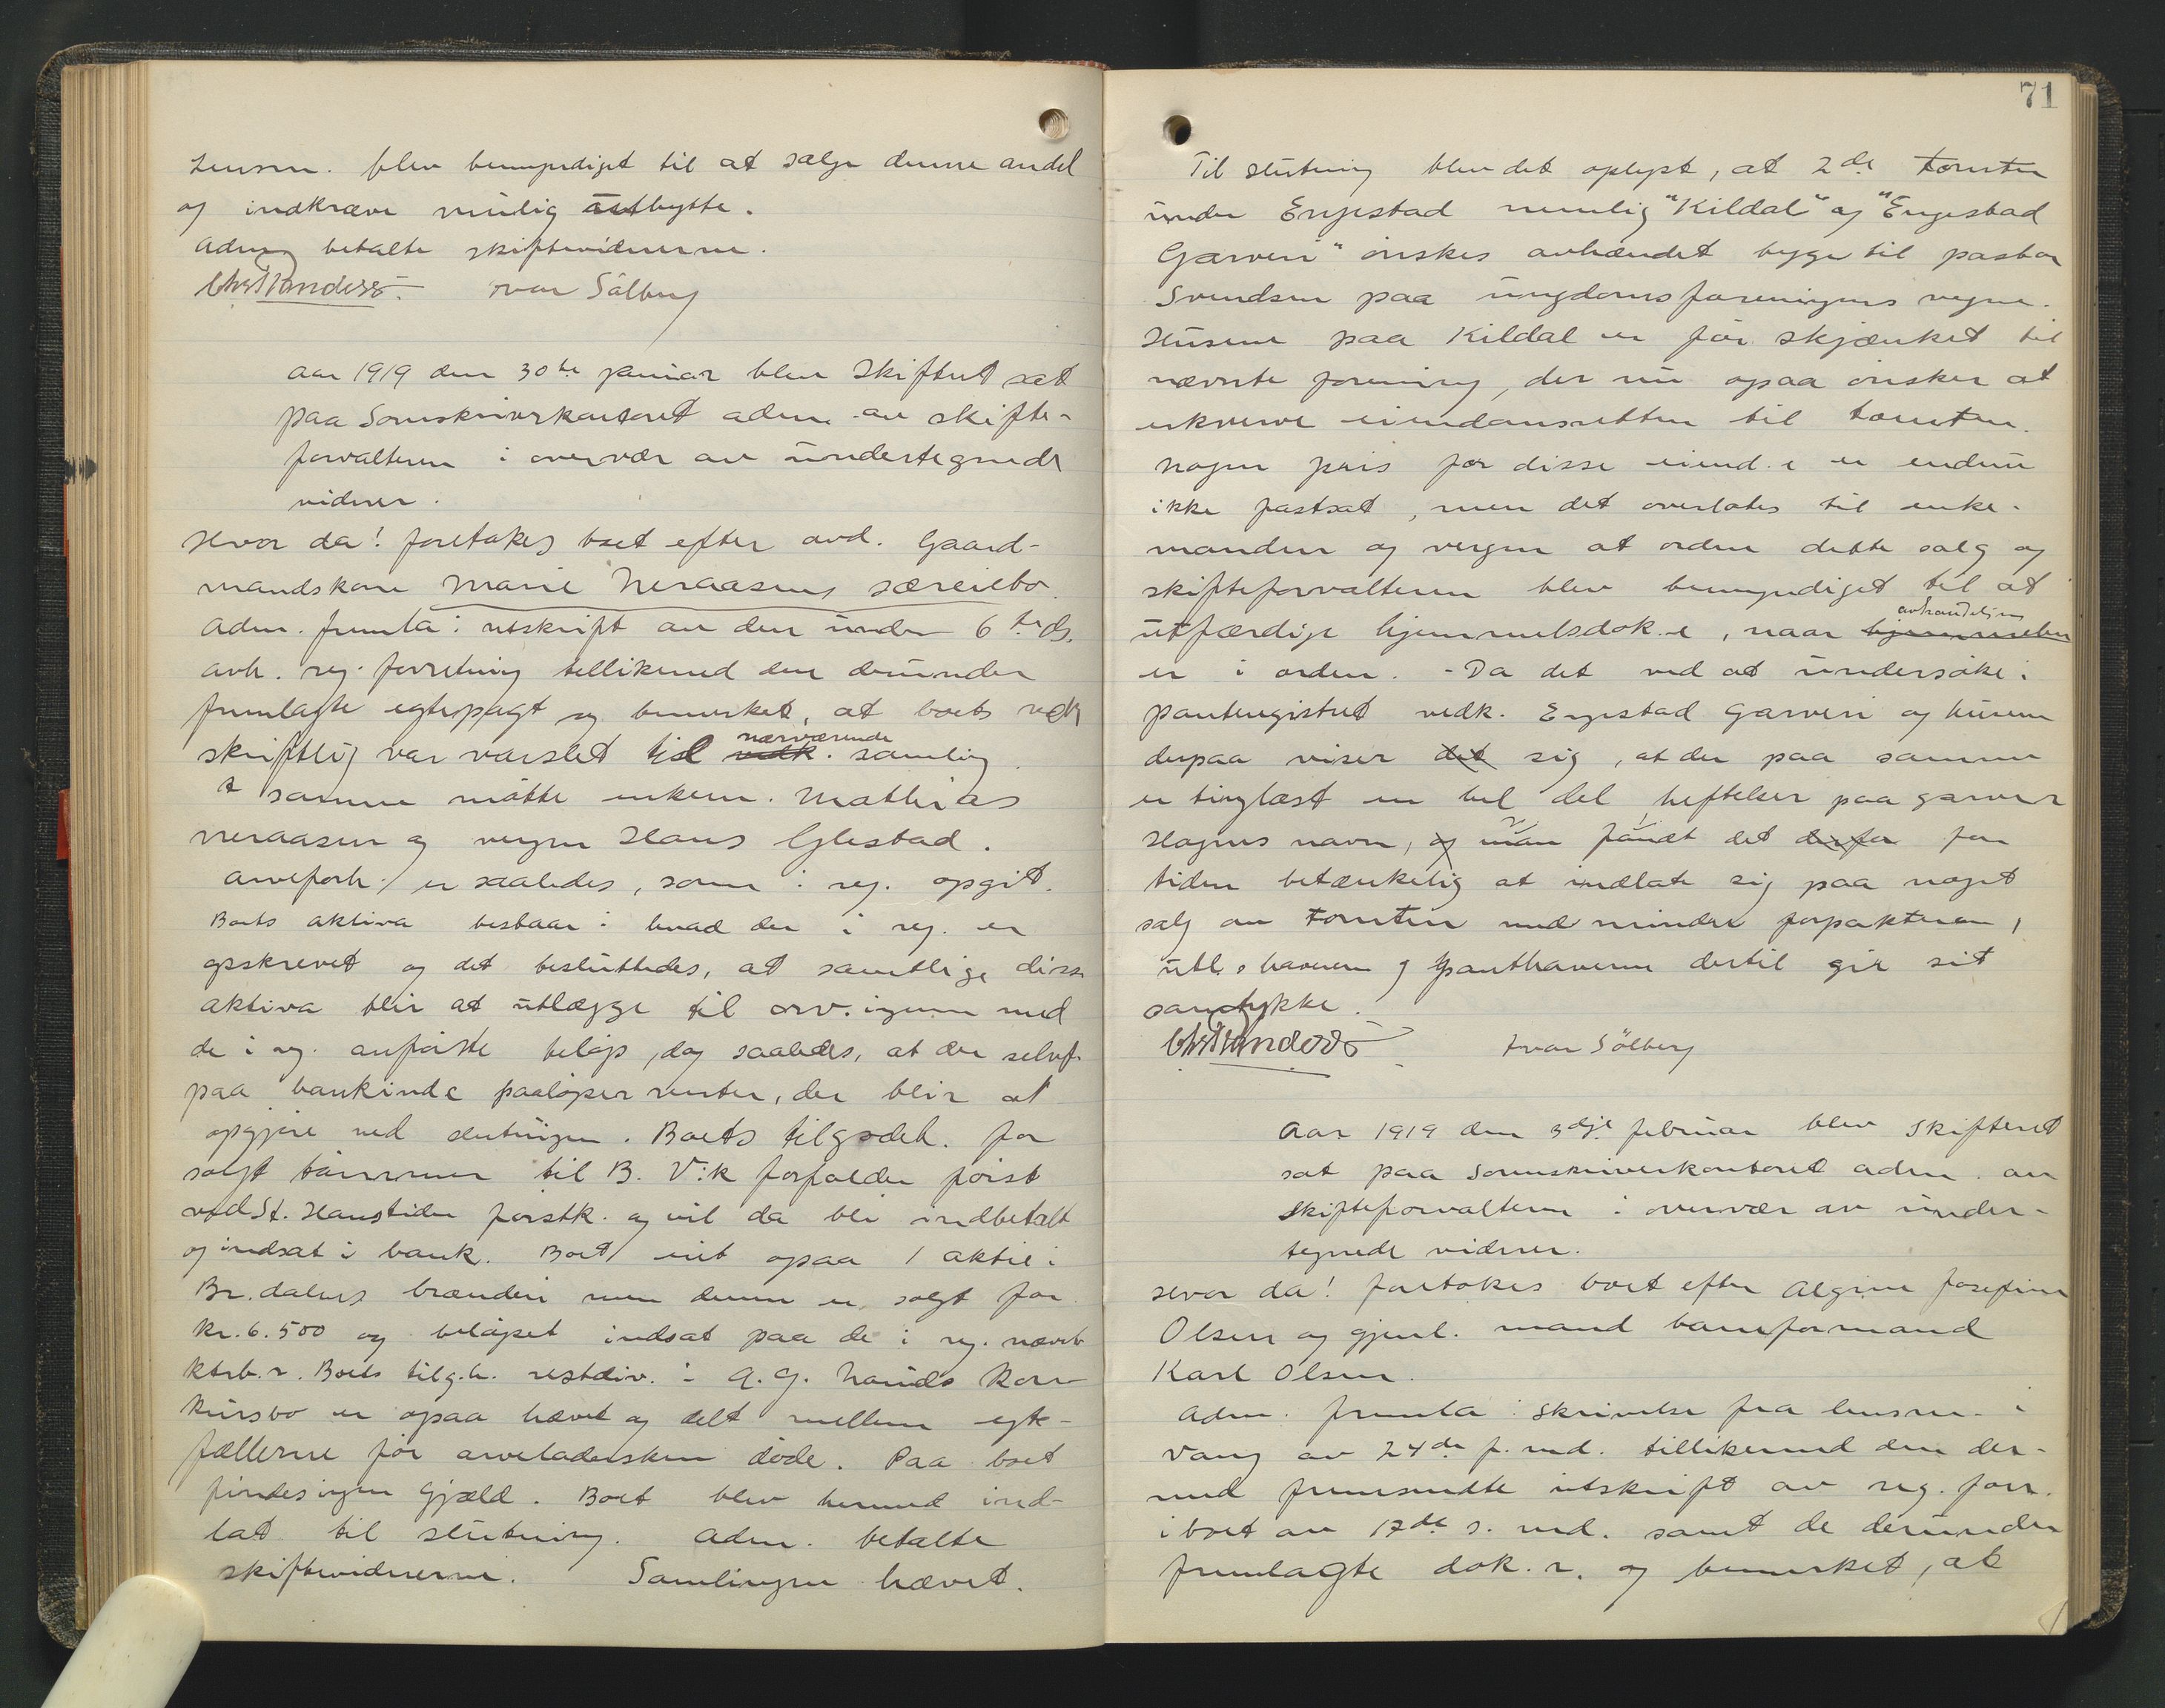 Lensm. blev bemyndiget til at sælge denne andel
og indkræve mulig utbytte.
Adm. betalte skiftevidnerne.
Ivar Sölberg
Aar 1919 den 30te januar blev Skifteret sat
paa Sorenskriverkontoret adm. av skifte-
forvalteren i overvær av undertegnede
vidner.
Hvor da! foretokes boet efter avd. Gaard-
mandskone Marie Neraasens særeiebo.
Adm. fremla: utskrift av den under 6te ds.
avh. reg. forretning tillikemed den derunder
fremlagte egtepagt og bemerket, at boets vedk
skriftlig var varslet til vedk. nærværende samling
I samme møtte enkem. Mathias
Neraasen og vergen Hans Glestad.
Arveforh. er saaledes, som i reg. opgit.
Boets aktiva bestaar i hvad der i reg. er
opskrevet og det besluttedes, at samtlige disse
aktiva blir at utlægge til arv.ingerne med
de i reg. anförte belöp, dog saaledes, at der selvf.
paa bankindsk. paalöper renter, der blir at
opgjöre ved slutningen. Boets tilgodeh. for
solgt tömmer til B. V:k forfalder först
ved St. Hanstider förstk. og vil da bli indbetalt
og indsat i bank. Boet eiet ogsaa 1 aktie i
Br.dalens brænderi men denne er solgt for
kr. 6.500 og belöpet indsat paa de i reg. nævnte
ktrb.r. Boets tilg.h. restdiv. i A. G. Konkursbo
kursbo er ogsaa hævet og delt mellem egte-
fællerne för arveladersken döde. Paa boet
findes ingen gjæld. Boet blev hermed ind-
lat til slutning. Adm. betalte
skiftevidnerne. Samlingen hævet.
71
Til slutning blev det oplyst, at 2de tomter
under Engestad nemlig "Kildal" og "Engestad
Garveri" önskes avhændet begge til pastor
Svendsen paa ungdomsforeningens vegne.
Husene paa Kildal er för skjænket til
nævnte forening, der nu ogsaa önsker at
erkverve eiendomsretten til tomten.
Nogen pris for disse eiend.e er endnu
ikke fastsat, men det overlates til enke-
manden og vergen at ordne dette salg og
skifteforvalteren blev bemyndiget til at
utfærdige hjemmelsdok.e, naar hjemmelen avhændelsen
er i orden. - Da det ved at undersöke i
pantregistret vedk. Engestad Garveri og husene
derpaa viser det sig, at der paa samme
er tinglæst en hel del heftelser paa garver
Hagens navn, og man fandt det derfor for
tiden betænkelig at indlate sig paa noget
salg av tomten med mindre forpakteren,
utl.shaveren og panthaverne dertil gir sit
samtykke.
Ivar Sölberg
Aar 1919 den 3dje februar blev Skifteret
sat paa Sorenskriverkontoret adm. av
Skifteforvalteren i overvær av under-
tegnede vidner.
Hvor da! foretokes boet efter Algine Josefine
Olsen og gjenl. mand baneformand
Karl Olsen.
Adm. fremla: Skrivelse fra lensm. i
Vang av 24de f. md. tillikemed den der-
med fremsendte utskrift av reg. forr.
i boet av 17de s. md. samt de derunder
fremlagte dok.r. og bemerket, at